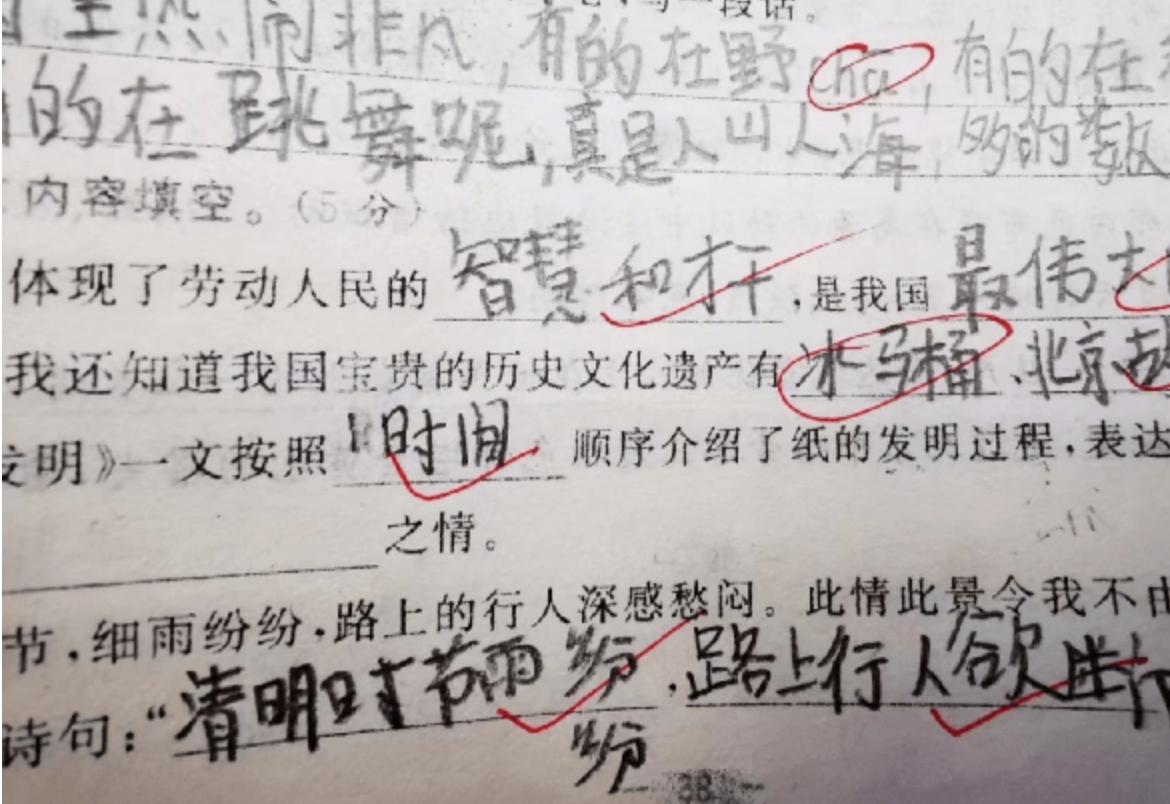 写一段话。
热闹非凡，有的在野cha，有的在
的在跳舞呢，真是人山人海，
内容填空。(5分)
体现了劳动人民的智慧和才干，是我国最伟大
我还知道我国宝贵的历史文化遗产有冰马桶、北京故
发明》一文按照"时间顺序介绍了纸的发明过程，表达
之情。
节，细雨纷纷，路上的行人深感愁闷。此情此景令我不由
诗句："清明时节雨纷纷，路上行人欲
38